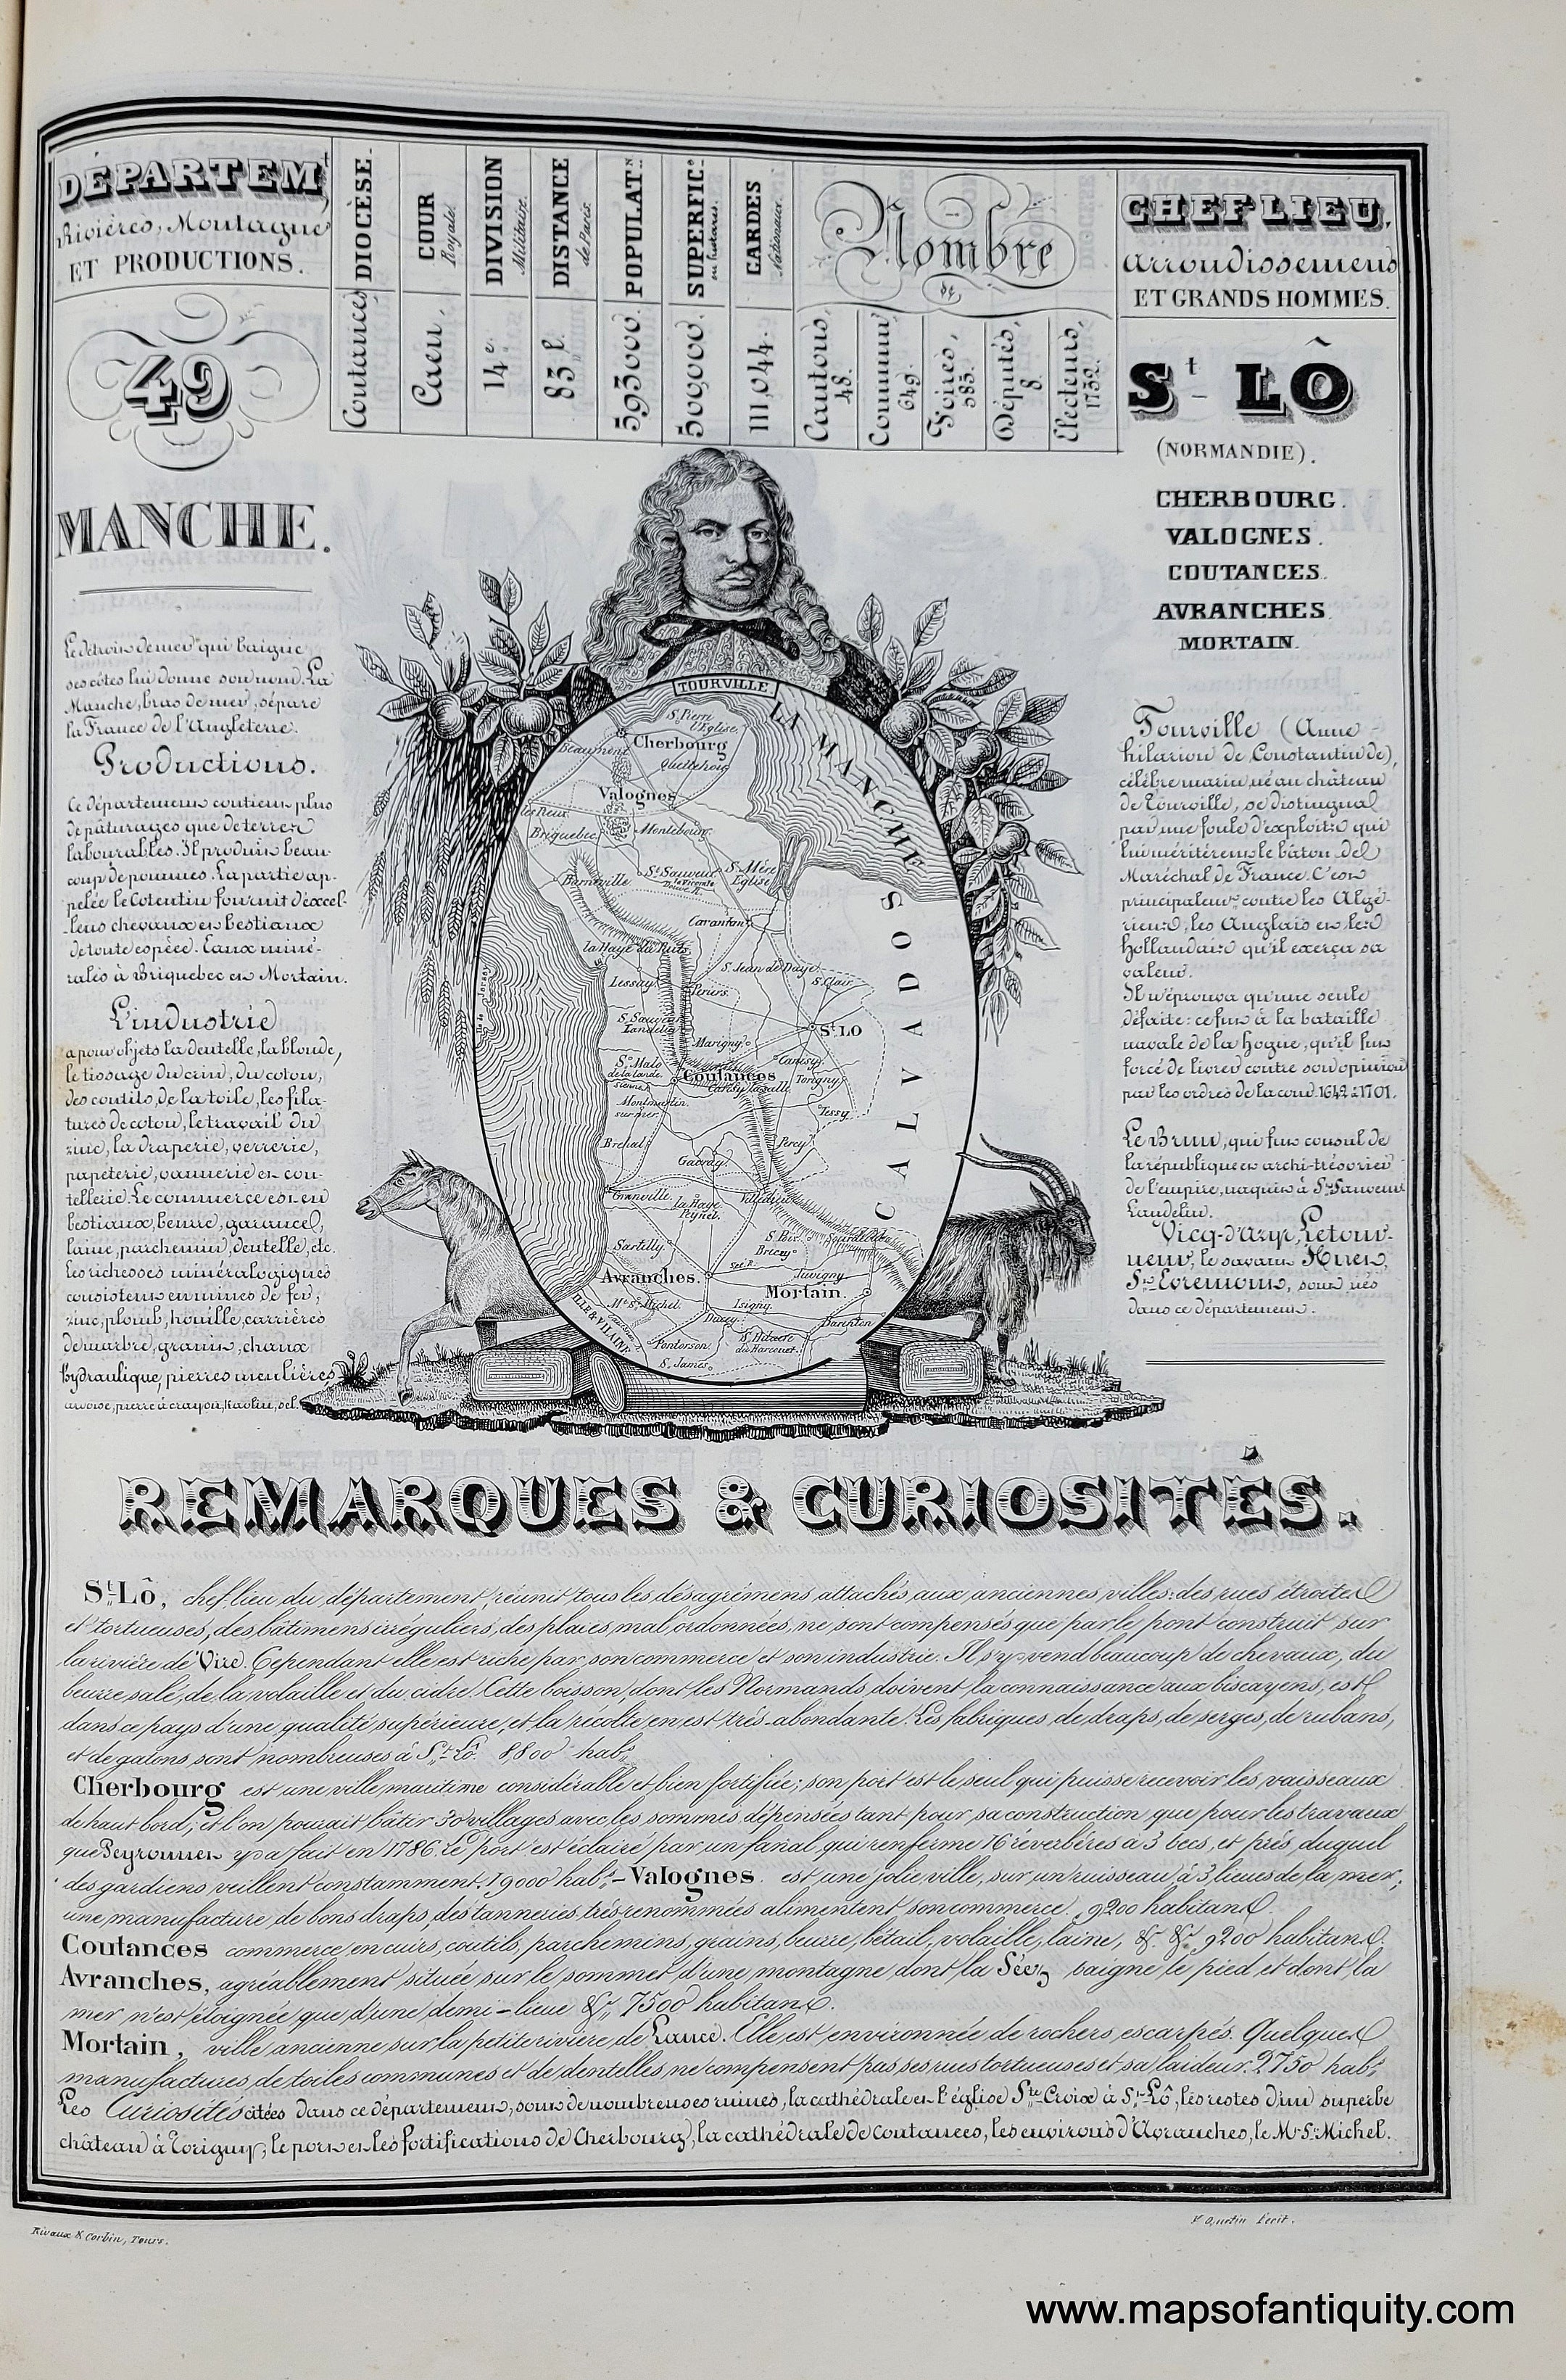 DÉPARTEM.t
Rivières, Montagne
ET PRODUCTIONS.
DIOCÈSE.
Coutances
COUR Royale.
Caen,
DIVISION Militaire.
14e.
DISTANCE de Paris.
83 l.
POPULAT.n
595000.
SUPERFIC.e en hectares.
500000.
GARDES Nationaux.
111,044.
Nombre
de
Cantons, 48.
Communes, 649.
Foires, 385.
Députés, 8.
Electeurs, 1732.
CHEF LIEU,
Arrondissemens
ET GRANDS HOMMES.
49
MANCHE.
Le détroit de mer qui baigne
ses côtes lui donne son nom. La
Manche, bras de mer, sépare
la France de l'Angleterre.
Productions.
Ce département contient plus
de pâturages que de terres
labourables. Il produit beau-
coup de pommes. La partie ap-
pelée le Cotentin fournit d'excel-
-lens chevaux et bestiaux
de toute espèce. Eaux miné-
rales à Briquebec et Mortain.
L'industrie
a pour objets la dentelle, la blonde,
le tissage du crin, du coton,
des coutils, de la toile, les fila-
tures de coton, le travail du
zinc, la draperie, verrerie,
papeterie, vannerie et cou-
tellerie. Le commerce est en
bestiaux, beurre, garance,
laine, parchemin, dentelle, etc.
Les richesses minéralogiques
consistent en mines de fer,
zinc, plomb, houille, carrières
de marbre, granit, chaux
hydraulique, pierres meulières
ardoise, pierre à crayon, Kaolin, sel.
St. LÔ
(NORMANDIE).
CHERBOURG.
VALOGNES.
COUTANCES.
AVRANCHES
MORTAIN.
Tourville (Anne-
hilarion de Constantin de),
célèbre marin, né au château
de Tourville, se distingua
par une foule d'exploits qui
lui méritèrent le bâton de
Maréchal de France. C'est
principalemt contre les Algé-
riens, les Anglais et les
Hollandais qu'il exerça sa
valeur.
Il n'éprouva qu'une seule
défaite: ce fut à la bataille
navale de la Hogue, qu'il fut
forcé de livrer contre son opinion
par les ordres de la cour. 1642 à 1701.
Le Brun, qui fut consul de
la république et archi-trésorier
de l'empire, naquit à St Sauveur
Landelin.
Vicq-d'Azir, Letour-
neur, le savant Huet,
St. Evremont, sont nés
dans ce département.
TOURVILLE.
LA MANCHE
S. Pierre l'Eglise.
Cherbourg
Beaumont
Quettehou
Valognes
les Pieux
Briquebec
Montebourg
S. Sauveur
S. Mère Eglise
Barneville
Carantan
la Haye du Puits
Lessay
S. Jean de Daye
S. Clair
Periers
S. Sauveur Landelin
St. LO
Marigny
S. Malo de la lande
Coutances
Canisy
Cerisy la salle
Torigny
Montmartin sur mer
Tessy
Brehal
Percy
Gavray
Granville
la Haye Pesnel
Villedieu
Sartilly
S. Pois
Sourdeval
Brecey
Avranches.
Juvigny
Mortain.
Mt St Michel
Isigny
Ducey
Barenton
Pontorson
S. Hilaire du Harcouet
S. James
ILLE & VILAINE
CALVADOS
REMARQUES & CURIOSITÉS.
St. Lô, chef-lieu du département, réunit tous les désagrémens attachés aux anciennes villes: des rues étroites
et tortueuses, des bâtimens irréguliers, des places mal ordonnées, ne sont compensés que par le pont construit sur
la rivière de Vire. Cependant elle est riche par son commerce et son industrie. Il s'y vend beaucoup de chevaux, du
beurre salé, de la volaille et du cidre. Cette boisson, dont les Normands doivent la connaissance aux biscayens, est
dans ce pays d'une qualité supérieure, et la récolte en est très-abondante. Les fabriques de draps, de serges, de rubans,
et de galons sont nombreuses à St. Lô. 8,800 habs.
Cherbourg est une ville maritime considérable et bien fortifiée; son port est le seul qui puisse recevoir les vaisseaux
de haut bord; et l'on pourait bâtir 30 villages avec les sommes dépensées tant pour sa construction que pour les travaux
que Peyronnet y a fait en 1786. Le port est éclairé par un fanal qui renferme 16 réverbères à 3 becs, et près duquel
des gardiens veillent constamment. 19000 habs. – Valognes est une jolie ville, sur un ruisseau à 3 lieues de la mer;
une manufacture de bons draps, des tanneries très renommées alimentent son commerce. 9200 habitans.
Coutances commerce en cuirs, coutils, parchemins, grains, beurre, bétail, volaille, laine, &. &. 9200 habitans.
Avranches, agréablement située sur le sommet d'une montagne dont la Séez baigne le pied et dont la
mer n'est éloignée que d'une demi-lieue &. 7500 habitans.
Mortain, ville ancienne sur la petite rivière de Lance. Elle est environnée de rochers escarpés. Quelques
manufactures de toiles communes et de dentelles ne compensent pas ses rues tortueuses et sa laideur. 2750 habs.
Les Curiosités citées dans ce département, sont de nombreuses ruines, la cathédrale et l'église Ste Croix à St. Lô, les restes d'un superbe
château à Torigny, le port et les fortifications de Cherbourg, la cathédrale de coutances, les environs d'Avranches, le Mt St Michel.
Rivaux & Corbin, Tours.
Quetin Fecit.
www.mapsofantiquity.com